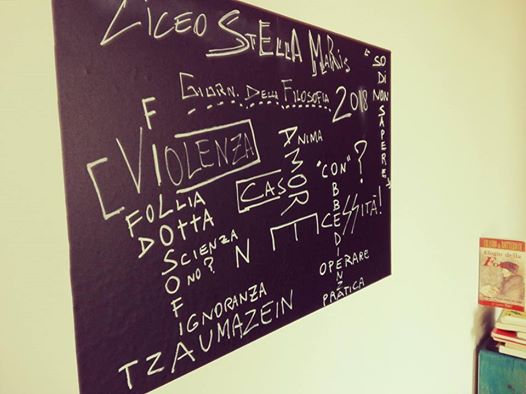 LICEO STELLA MARIS
GIORN. DELLA FILOSOFIA 2018
"SO DI NON SAPERE"
FILOSOFIA
[VIOLENZA
ANIMA
AMORE
CASO
"CON"?
OBBEDIENZA
FOLLIA
DOTTA
NECESSITÀ!
SCIENZA
O NO?
OPERARE
IGNORANZA
PRATICA
TZAUMAZEIN
Elogio della